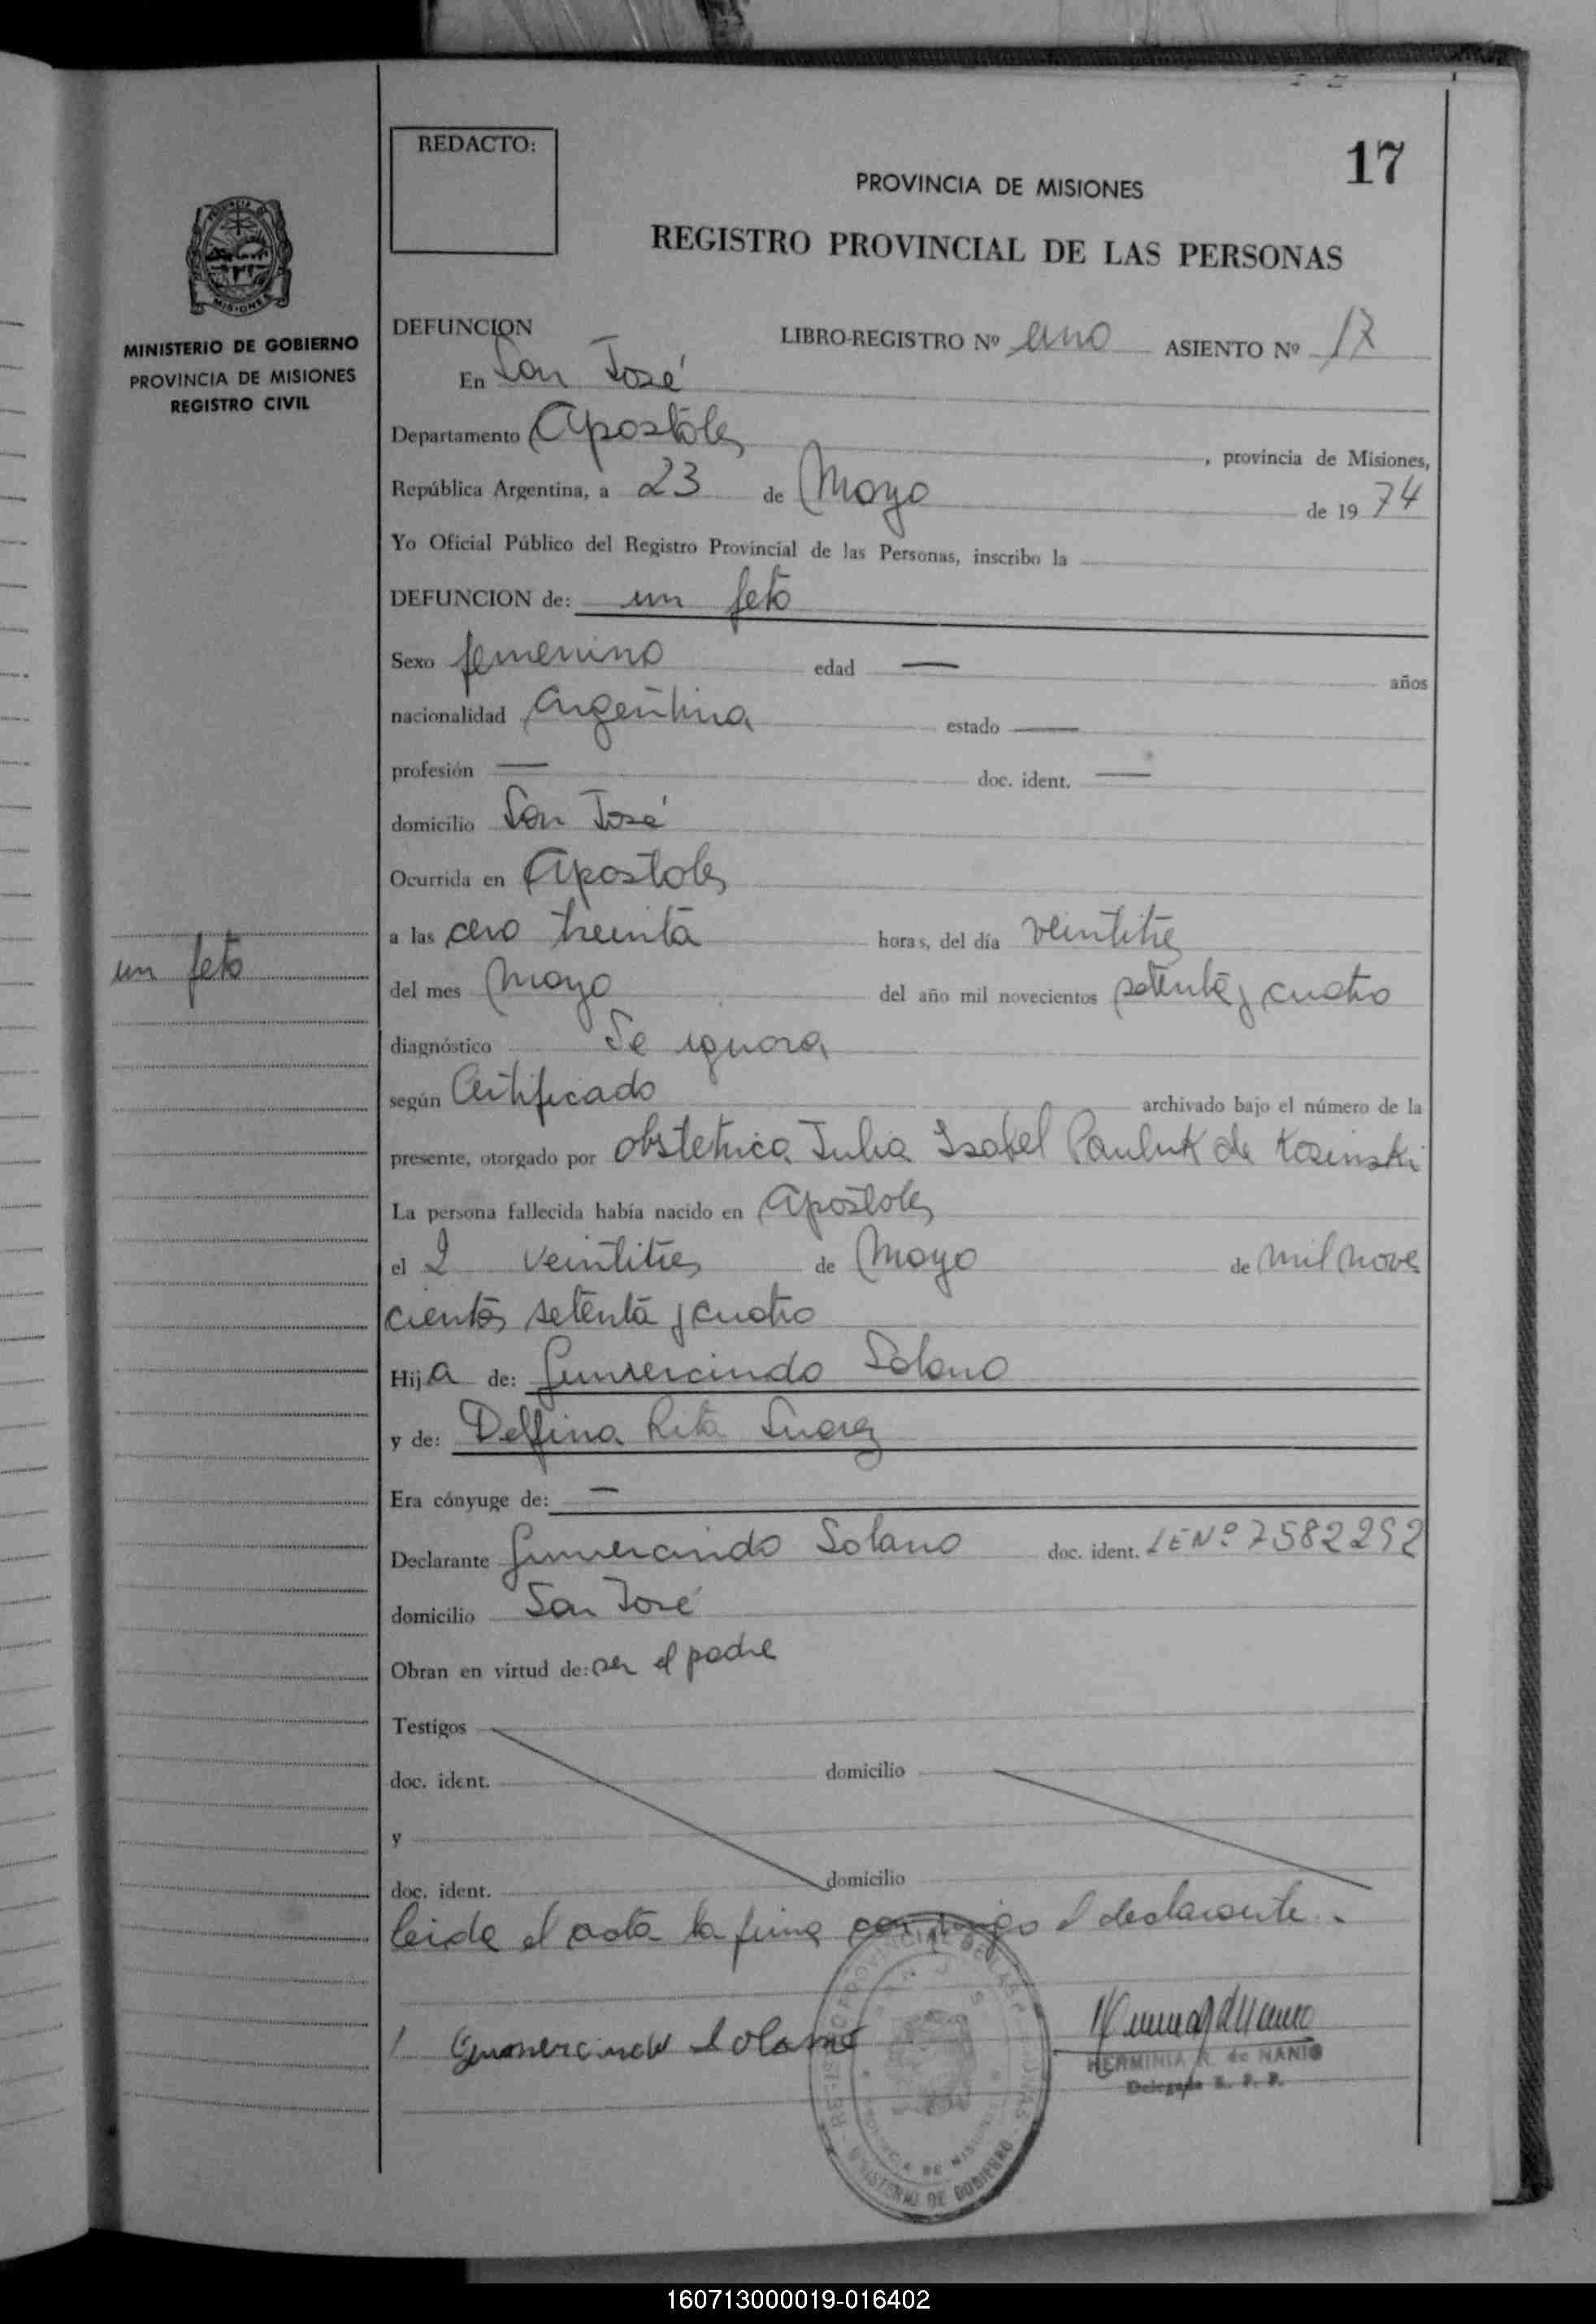 REDACTO:
17
PROVINCIA DE MISIONES
REGISTRO PROVINCIAL DE LAS PERSONAS
MINISTERIO DE GOBIERNO
PROVINCIA DE MISIONES
REGISTRO CIVIL
DEFUNCION LIBRO-REGISTRO Nº uno ASIENTO Nº 17
En San José
Departamento Apostoles, provincia de Misiones,
República Argentina, a 23 de Mayo de 1974
Yo Oficial Público del Registro Provincial de las Personas, inscribo la
DEFUNCION de: un feto
Sexo femenino edad — años
nacionalidad Argentina estado —
profesión — doc. ident. —
domicilio San José
Ocurrida en Apostoles
a las cero treinta horas, del día veintitres
un feto
del mes Mayo del año mil novecientos setenta y cuatro
diagnóstico Se ignora
según Certificado archivado bajo el número de la
presente, otorgado por obstetrica Julia Isabel Pauluk de Kosinski
La persona fallecida había nacido en Apostoles
el veintitres de Mayo de mil nove
cientos setenta y cuatro
Hija de: Gumercindo Solano
y de: Delfina Rita Suarez
Era cónyuge de: —
Declarante Gumercindo Solano doc. ident. LE Nº 7582292
domicilio San José
Obran en virtud de: ser el padre
Testigos
doc. ident. domicilio
y
doc. ident. domicilio
leida el acta la firma conmigo el declarante.
Gumercindo Solano
HERMINIA R. de NANIO
Delegada R. P. P.
MINISTERIO DE GOBIERNO
160713000019-016402